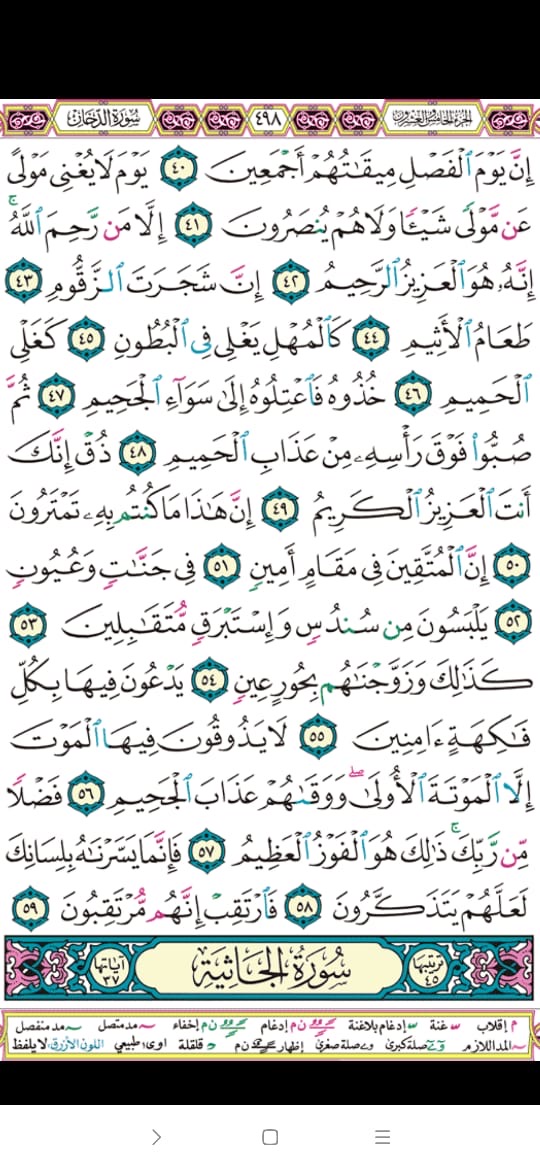 سُورَةُ الدُّخَانِ ٤٩٨ الجزء الخامس والعشرون
إِنَّ يَوْمَ ٱلْفَصْلِ مِيقَـٰتُهُمْ أَجْمَعِينَ ٤٠ يَوْمَ لَا يُغْنِى مَوْلًى
عَن مَّوْلًى شَيْـًٔا وَلَا هُمْ يُنصَرُونَ ٤١ إِلَّا مَن رَّحِمَ ٱللَّهُ ۚ
إِنَّهُۥ هُوَ ٱلْعَزِيزُ ٱلرَّحِيمُ ٤٢ إِنَّ شَجَرَتَ ٱلزَّقُّومِ ٤٣
طَعَامُ ٱلْأَثِيمِ ٤٤ كَٱلْمُهْلِ يَغْلِى فِى ٱلْبُطُونِ ٤٥ كَغَلْىِ
ٱلْحَمِيمِ ٤٦ خُذُوهُ فَٱعْتِلُوهُ إِلَىٰ سَوَآءِ ٱلْجَحِيمِ ٤٧ ثُمَّ
صُبُّوا۟ فَوْقَ رَأْسِهِۦ مِنْ عَذَابِ ٱلْحَمِيمِ ٤٨ ذُقْ إِنَّكَ
أَنتَ ٱلْعَزِيزُ ٱلْكَرِيمُ ٤٩ إِنَّ هَـٰذَا مَا كُنتُم بِهِۦ تَمْتَرُونَ
٥٠ إِنَّ ٱلْمُتَّقِينَ فِى مَقَامٍ أَمِينٍ ٥١ فِى جَنَّـٰتٍ وَعُيُونٍ
٥٢ يَلْبَسُونَ مِن سُندُسٍ وَإِسْتَبْرَقٍ مُّتَقَـٰبِلِينَ ٥٣
كَذَٰلِكَ وَزَوَّجْنَـٰهُم بِحُورٍ عِينٍ ٥٤ يَدْعُونَ فِيهَا بِكُلِّ
فَـٰكِهَةٍ ءَامِنِينَ ٥٥ لَا يَذُوقُونَ فِيهَا ٱلْمَوْتَ
إِلَّا ٱلْمَوْتَةَ ٱلْأُولَىٰ ۖ وَوَقَىٰهُمْ عَذَابَ ٱلْجَحِيمِ ٥٦ فَضْلًا
مِّن رَّبِّكَ ۚ ذَٰلِكَ هُوَ ٱلْفَوْزُ ٱلْعَظِيمُ ٥٧ فَإِنَّمَا يَسَّرْنَـٰهُ بِلِسَانِكَ
لَعَلَّهُمْ يَتَذَكَّرُونَ ٥٨ فَٱرْتَقِبْ إِنَّهُم مُّرْتَقِبُونَ ٥٩
ترتيبها ٤٥ سُورَةُ الجَاثِيَةِ آياتها ٣٧
م إقلاب غنة إدغام بلاغنة ن م إدغام ن م إخفاء مد متصل مد منفصل
المد اللازم صلة كبرى صلة صغرى إظهار ن م قلقلة اوى طبيعي اللون الأزرق: لا يلفظ